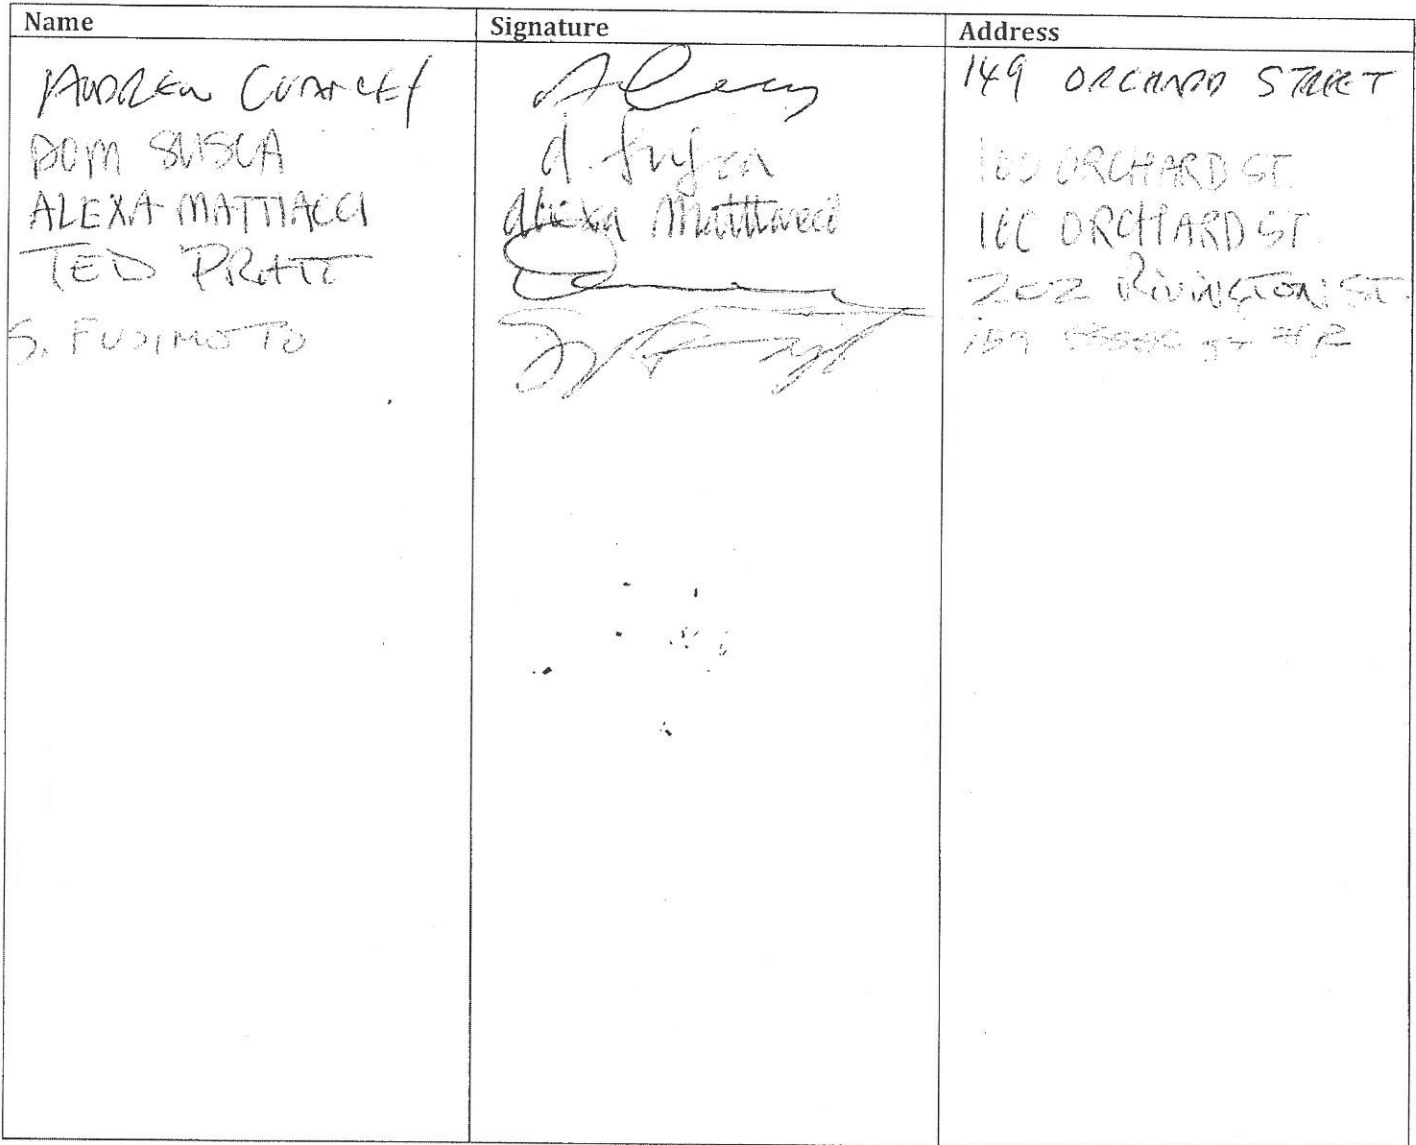 Name Signature Address
ANDREW 149 ORCHARD STREET
DOM SUSCA ORCHARD ST.
ALEXA MATTIACCI Alexa Mattiacci ORCHARD ST.
TED PRATT 202 RIVINGTON ST.
S. FUJIMOTO 159 ESSEX ST